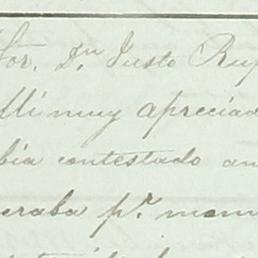 Sor. Dn Justo Ruf
Mi muy apreciad
bia contestado an
eraba pr. mom